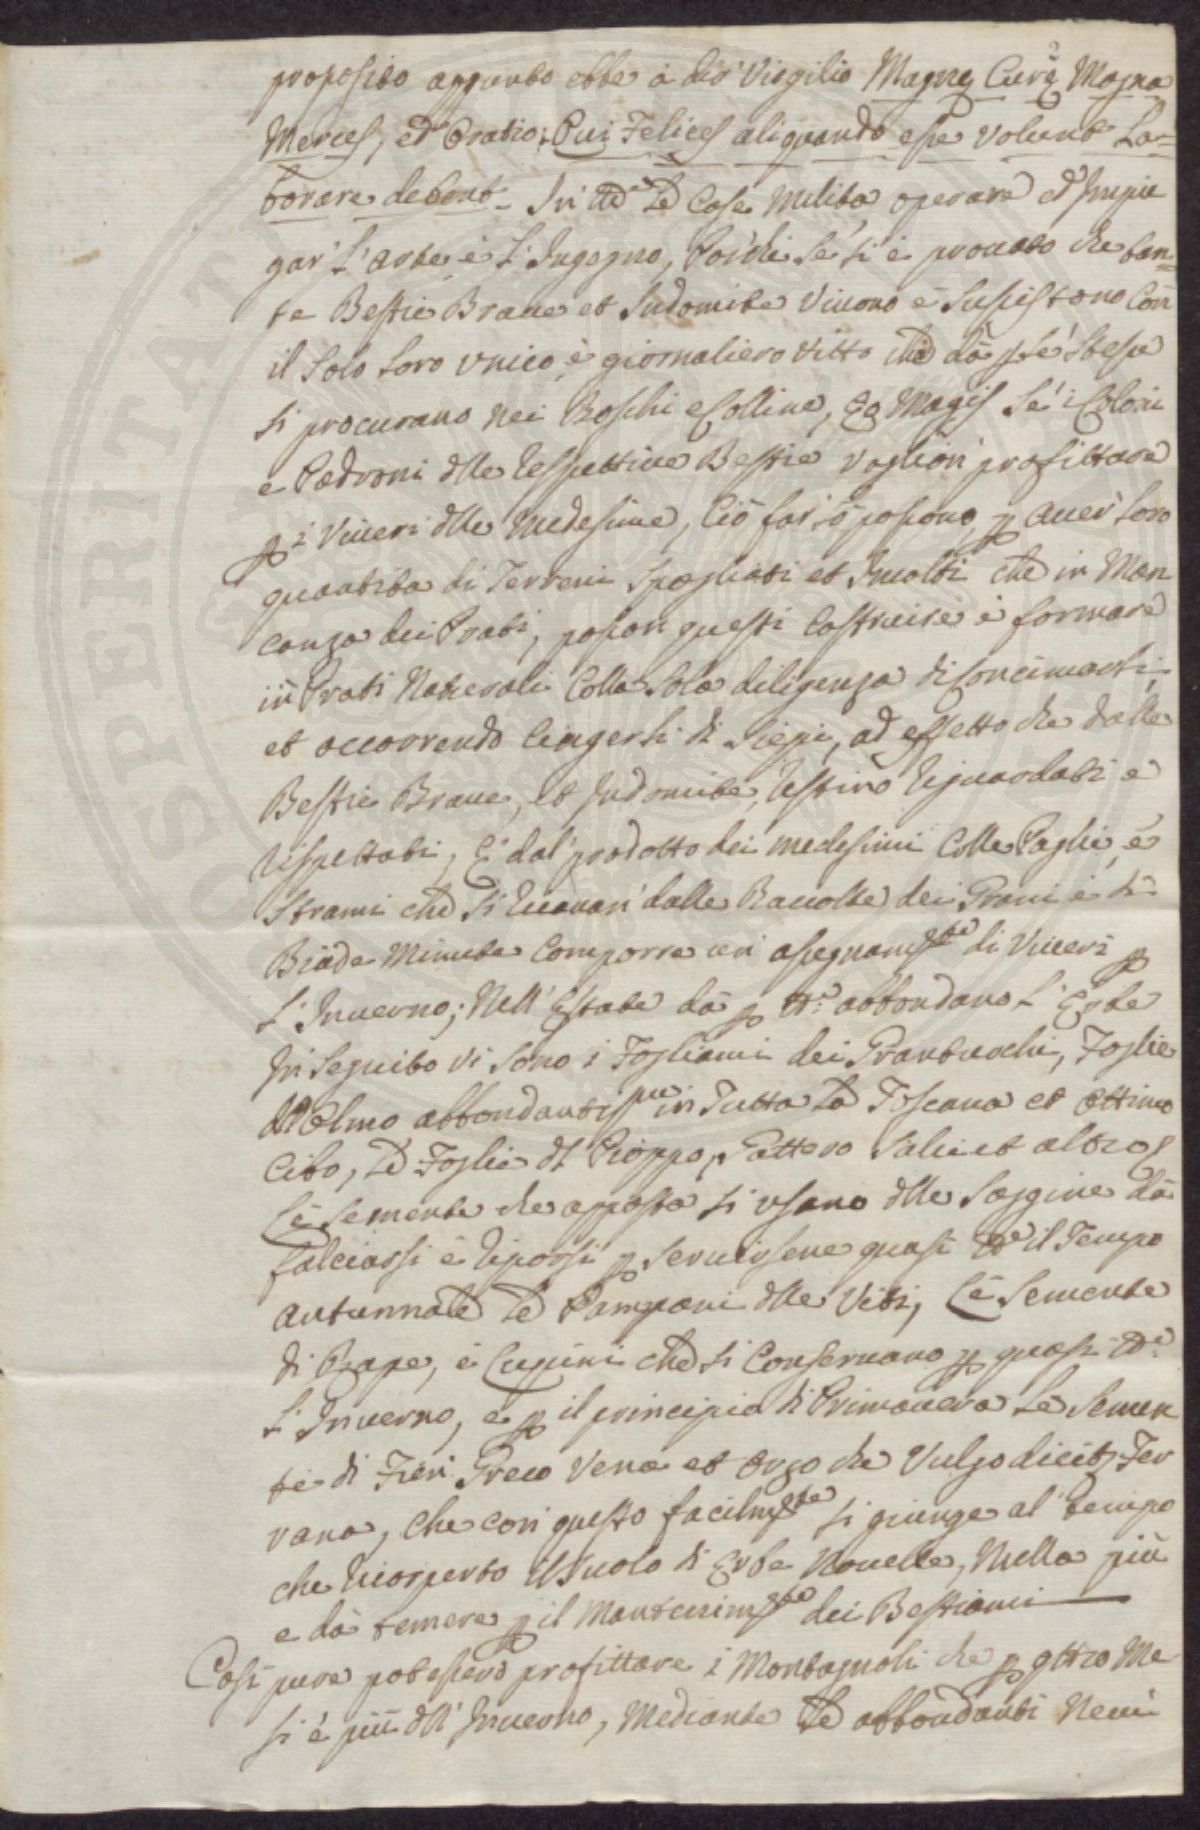 proposito appunto ebbe à dir Virgilio Magnę Curę Magna
Merces, ed Oratio; Qui Felices aliquando esse volunt La=
borare debent. In tte Le Cose Milita operare ed Impie
gar' L'arte è L'Ingegno, Poiche se si è provato che tan=
te Bestie Brave et Indomite Vivono e Sussistono Con
il Solo Loro Unico è giornaliero Vitto che dà p se stesse
si procurano nei Boschi e Colline, Eo Magis se i Coloni
e Padroni dlle Respettive Bestie voglion' profittare
p i Viveri dlle Medesime, Ciò far lo possono, p aver Loro
quantita di Terreni Spogliati et Incolti che in Man
canza dei Prati, posson questi Costruire è formare
in Prati Naturali Colla Sola diligenza di Concimarli,
et occorrendo Cingerli di Siepi, ad effetto che dalle
Bestie Brave, et Indomite, Restino Riguardati è
Rispettati, E dal prodotto dei medesimi Colle Paglie, è
Strami che si Ricavan' dalle Raccolte dei Grani è di
Biade Minute Comporre un' assegnamto di Viveri p
L'Inverno; Nell'Estate dà p tt.o abbondano L'Erbe
In Seguito vi Sono i Fogliami dei Granturchi, Foglie
d'Olmo abbondantissme in Tutta La Toscana et Ottimo
Cibo, Le Foglie di Pioppo, Gattero Salci et altro,
Le Semente che apposta si usano dlle Saggine dà
falciarsi è riporsi p servirsene quasi tto il Tempo
autunnale Le Pampani dlle Viti, Le Semente
di Rape, è Lupini che si Conservano p quasi tt.o
L'Inverno, e p il principio di Primavera Le Semen
te di Fien Greco Vena et Orzo che Vulgo dicit Fer
rana, Che con questo facilmte si giunge al tempo
che ricoperto il Suolo di Erbe Novelle, Nulla più
e dà temere p il Mantenimto dei Bestiami
Così pure potessero profittare i Montagnoli che p qttro Me
si è più dll'Inverno, Mediante Le abbondanti Nevi